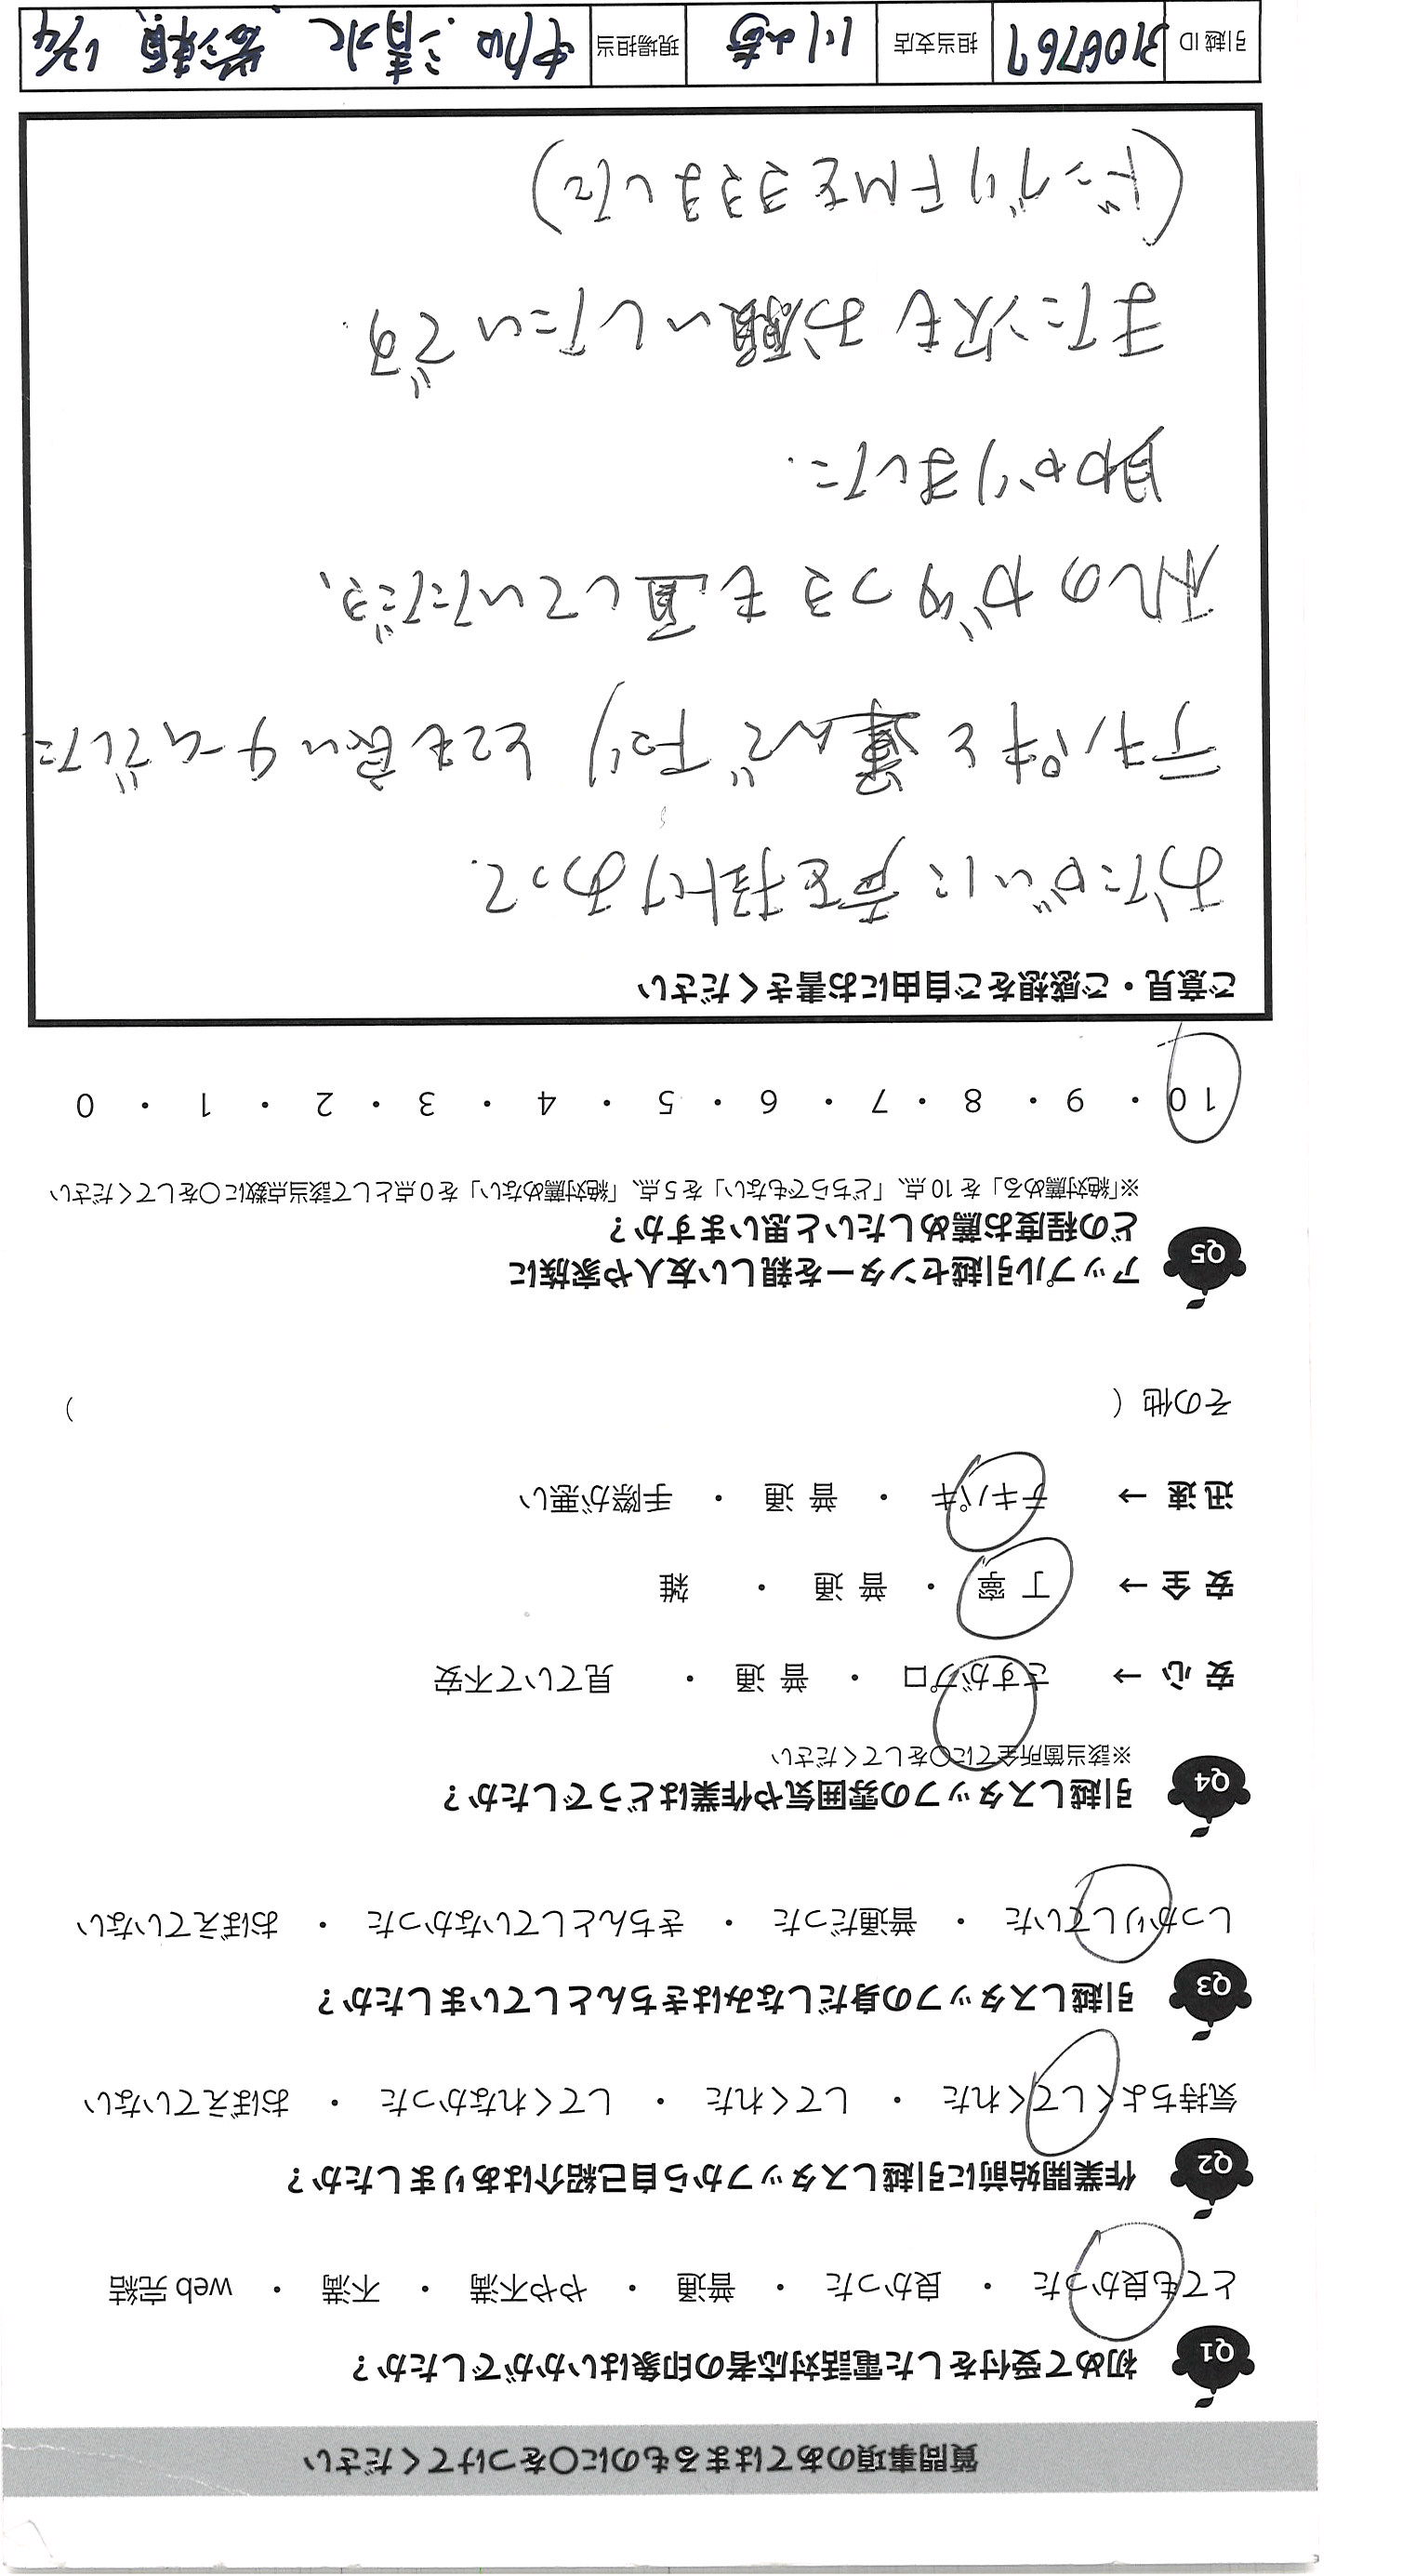 質問事項のあてはまるものに〇をつけてください
Q1 初めて受付をした電話対応者の印象はいかがでしたか？
とても良かった ・ 良かった ・ 普通 ・ やや不満 ・ 不満 ・ web 完結
Q2 作業開始前に引越しスタッフから自己紹介はありましたか？
気持ちよくしてくれた ・ してくれた ・ してくれなかった ・ おぼえていない
Q3 引越しスタッフの身だしなみはきちんとしていましたか？
しっかりしていた ・ 普通だった ・ きちんとしていなかった ・ おぼえていない
Q4 引越しスタッフの雰囲気や作業はどうでしたか？
※該当箇所全てに〇をしてください
安心 → さすがプロ ・ 普通 ・ 見ていて不安
安全 → 丁寧 ・ 普通 ・ 雑
迅速 → テキパキ ・ 普通 ・ 手際が悪い
その他（ ）
Q5 アップル引越センターを親しい友人や家族に
どの程度お薦めしたいと思いますか？
※「絶対薦める」を 10 点、「どちらでもない」を 5 点、「絶対薦めない」を 0 点として該当点数に〇をしてください
10 ・ 9 ・ 8 ・ 7 ・ 6 ・ 5 ・ 4 ・ 3 ・ 2 ・ 1 ・ 0
ご意見・ご感想をご自由にお書きください
おたがいに声を掛けあって.
テキパキと運んで下さり とても良いチームでした
机のがたつきも直していただき、
助かりました.
また次もお願いしたいです.
(ドングリFMをききまして)
引越 ID 3106767 担当支店 川崎 現場担当 清水 12/4